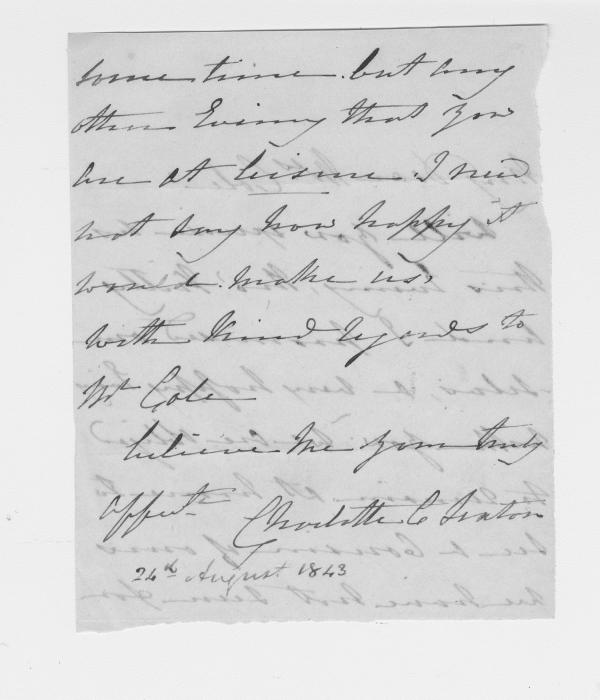 some time. but any
other Evening that you
are at leisure. I need
not say how happy it
would. make us,
with kind regards to
Mr Cole
believe me your truly
affect. Charlotte C
24th August 1843